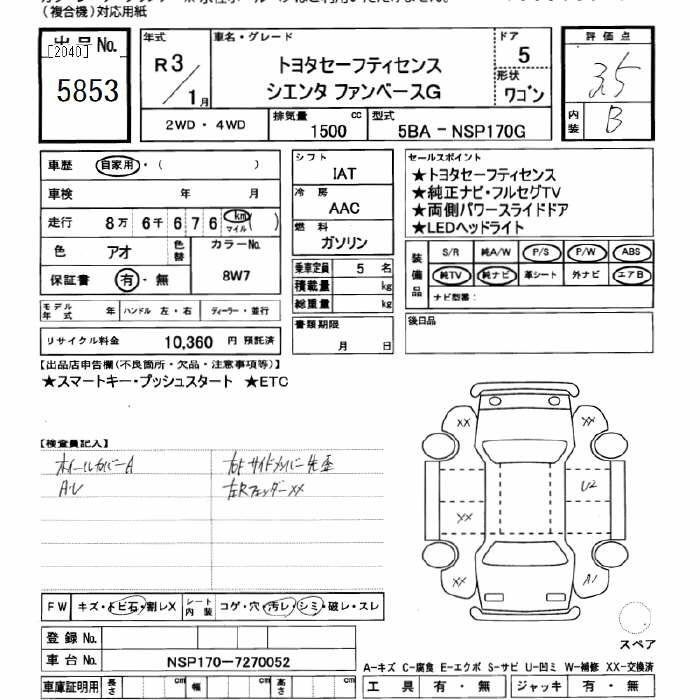 (複合機)対応用紙
出品No.
[2040]
5853
年式 R3/1月
車名・グレード
トヨタセーフティセンス
シエンタ ファンベースG
ドア 5
形状 ワゴン
2WD・4WD
排気量 1500 cc
型式 5BA-NSP170G
評価点 3.5
内装 B
車歴 自家用・( )
車検 年 月
走行 8万 6千 6 7 6 km マイル ( )
色 アオ 色替 カラーNo. 8W7
保証書 有・無
モデル年式 年 ハンドル 左・右 ディーラー・並行
リサイクル料金 10,360 円 預託済
シフト
IAT
冷房
AAC
燃料
ガソリン
乗車定員 5 名
積載量 kg
総重量 kg
書類期限
月 日
セールスポイント
★トヨタセーフティセンス
★純正ナビ・フルセグTV
★両側パワースライドドア
★LEDヘッドライト
装備品
S/R 純A/W P/S P/W ABS
純TV 純ナビ 革シート 外ナビ エアB
ナビ型番:
後日品
【出品店申告欄(不良箇所・欠品・注意事項等)】
★スマートキー・プッシュスタート ★ETC
【検査員記入】
ホイールカバーA
AU
左Rフェンダーxx
XX XX
U2
XX
XX A1
スペア
FW キズ・トビ石・割レX
シート内装 コゲ・穴・汚レ・シミ・破レ・スレ
登録No.
車台No. NSP170-7270052
車庫証明用 長さ cm 幅 cm 高さ cm
A-キズ C-腐食 E-エクボ S-サビ U-凹ミ W-補修 XX-交換済
工具 有・無 ジャッキ 有・無